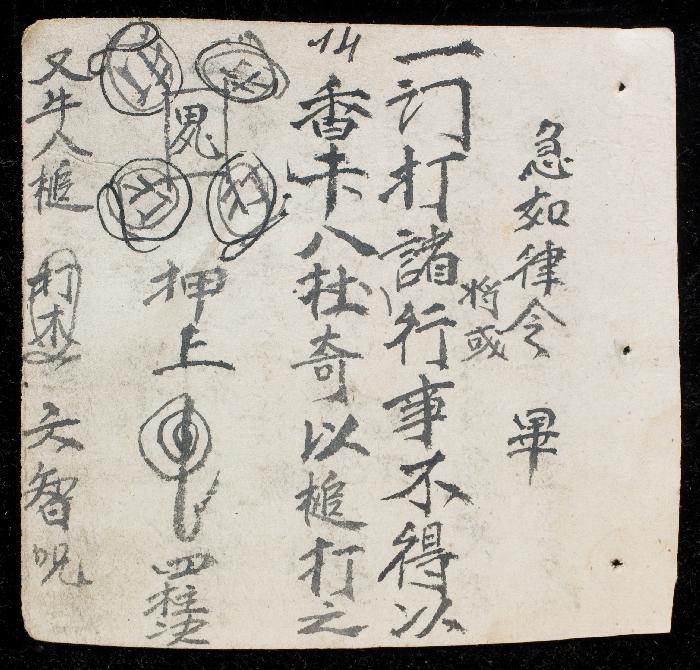 急如律令 畢
將或
一訂打諸行事不得以
香卡八杜奇以槌打之
鬼
押上
四柱决
又牛八槌 打 天智呪